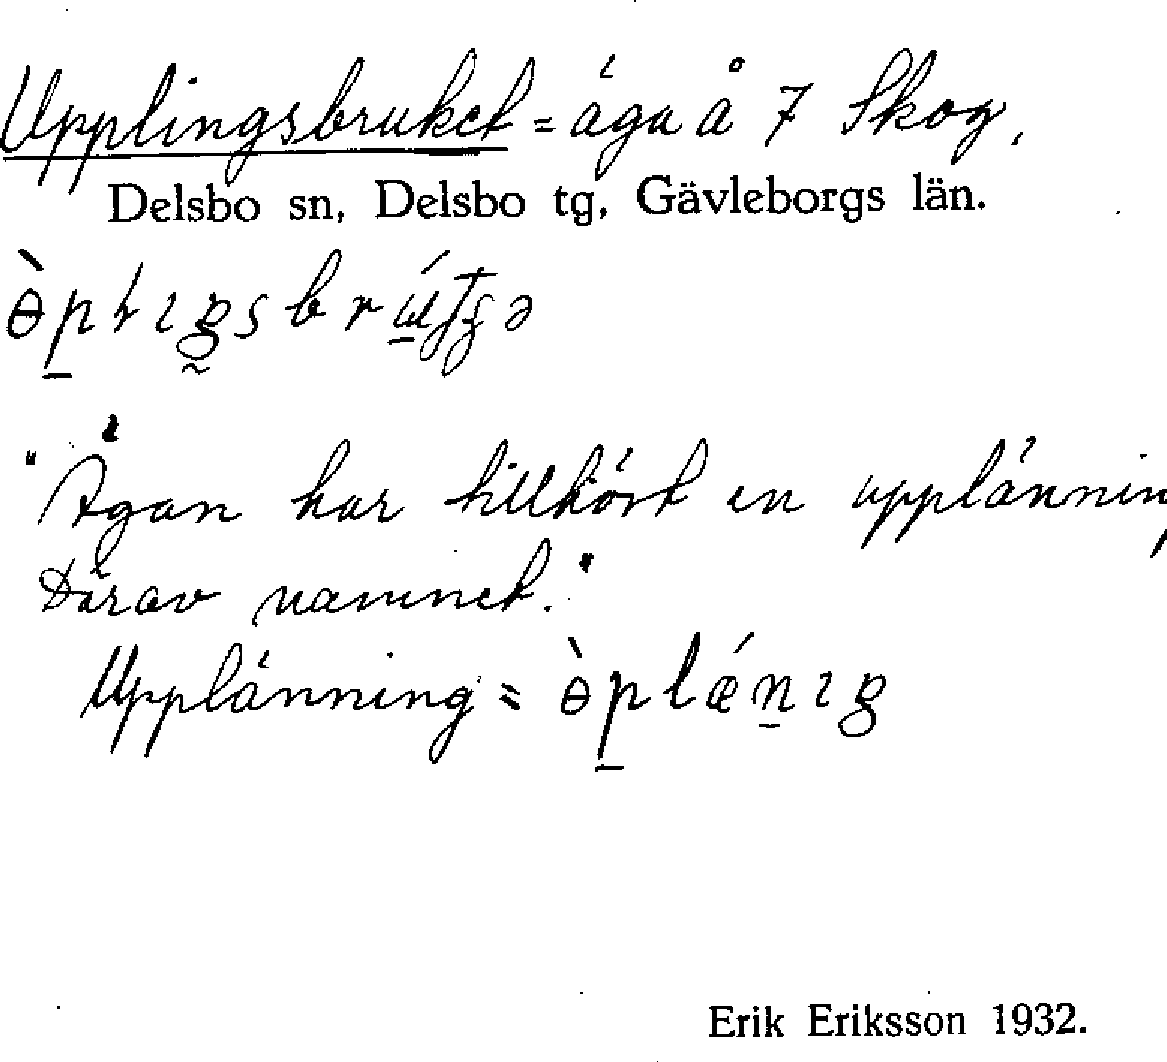 Upplingsbruket = äga å 7 Skog.
Delsbo sn, Delsbo tg, Gävleborgs län.
"Ägan har tillhört en upplännin
Därav namnet."
Upplänning = ɵ̀plǽnıŋ
Erik Eriksson 1932.